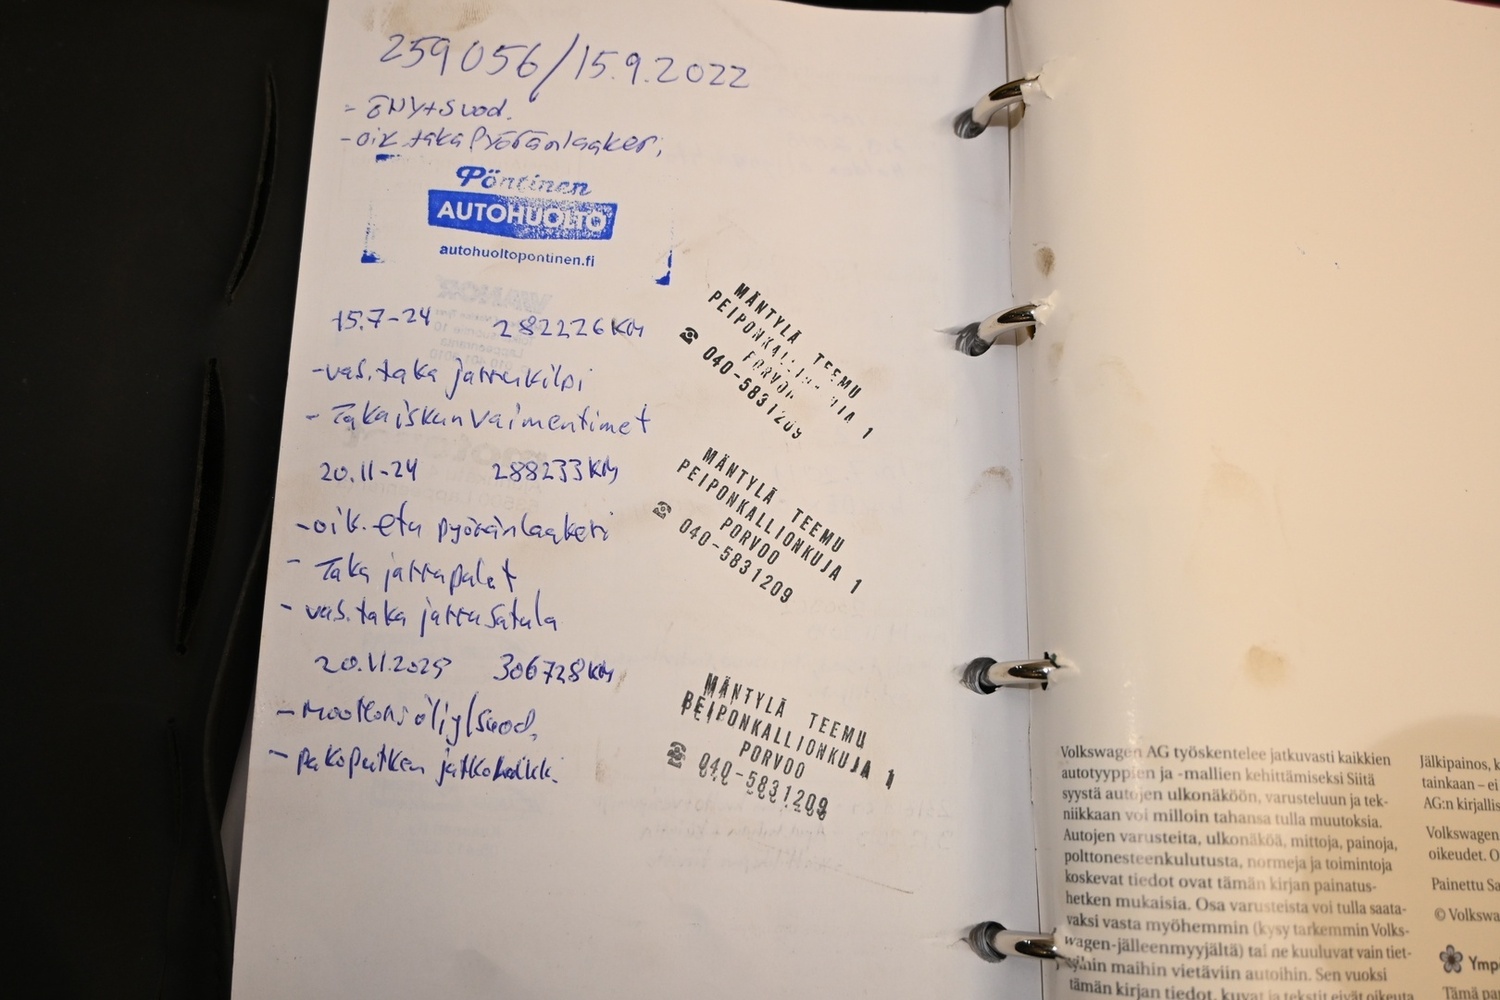 259056/15.9.2022
- ÖNY+Suod.
- oik taka Pyöränlaakeri
Pöntinen
AUTOHUOLTO
autohuoltopontinen.fi
15.7-24 282226KM
- vas. taka jarrukilpi
- Takaiskunvaimentimet
MÄNTYLÄ TEEMU
PEIPONKALLIONKUJA 1
PORVOO
☎ 040-5831209
20.11-24 288233KM
- oik. etu pyöränlaakeri
- Taka jarrupalat
- vas. taka jarrusatula
MÄNTYLÄ TEEMU
PEIPONKALLIONKUJA 1
PORVOO
☎ 040-5831209
20.VI.2025 306728KM
- moottoriöljy/suod.
- pakoputken jatkoholkki
MÄNTYLÄ TEEMU
PEIPONKALLIONKUJA 1
PORVOO
☎ 040-5831209
Volkswagen AG työskentelee jatkuvasti kaikkien
autotyyppien ja -mallien kehittämiseksi Siitä
syystä autojen ulkonäköön, varusteluun ja tek-
niikkaan voi milloin tahansa tulla muutoksia.
Autojen varusteita, ulkonäköä, mittoja, painoja,
polttonesteenkulutusta, normeja ja toimintoja
koskevat tiedot ovat tämän kirjan painatus-
hetken mukaisia. Osa varusteista voi tulla saata-
vaksi vasta myöhemmin (kysy tarkemmin Volks-
wagen-jälleenmyyjältä) tai ne kuuluvat vain tiet-
tyihin maihin vietäviin autoihin. Sen vuoksi
tämän kirjan tiedot, kuvat ja tekstit eivät oikeuta
Jälkipainos, k
tainkaan – ei
AG:n kirjallis
Volkswagen
oikeudet. O
Painettu Sa
© Volkswa
Ymp
Tämä pa